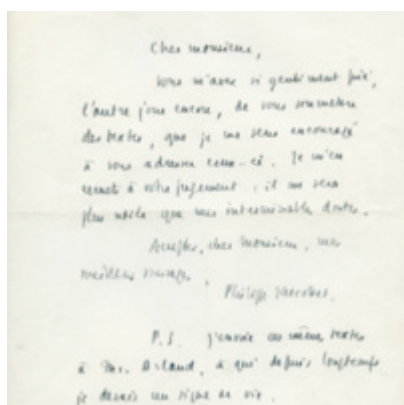 Cher monsieur,
vous m'avez si gentiment prié,
l'autre jour encore, de vous soumettre
des textes, que je me sens encouragé
à vous adresser ceux-ci. Je m'en
remets à votre jugement ; il me sera
plus utile que mes interminables doutes.
Acceptez, cher Monsieur, mes
meilleurs messages,
Philippe Jaccottet.
P.S. J'envoie ces mêmes textes
à Mr. Arland, à qui depuis longtemps
je devais un signe de vie.